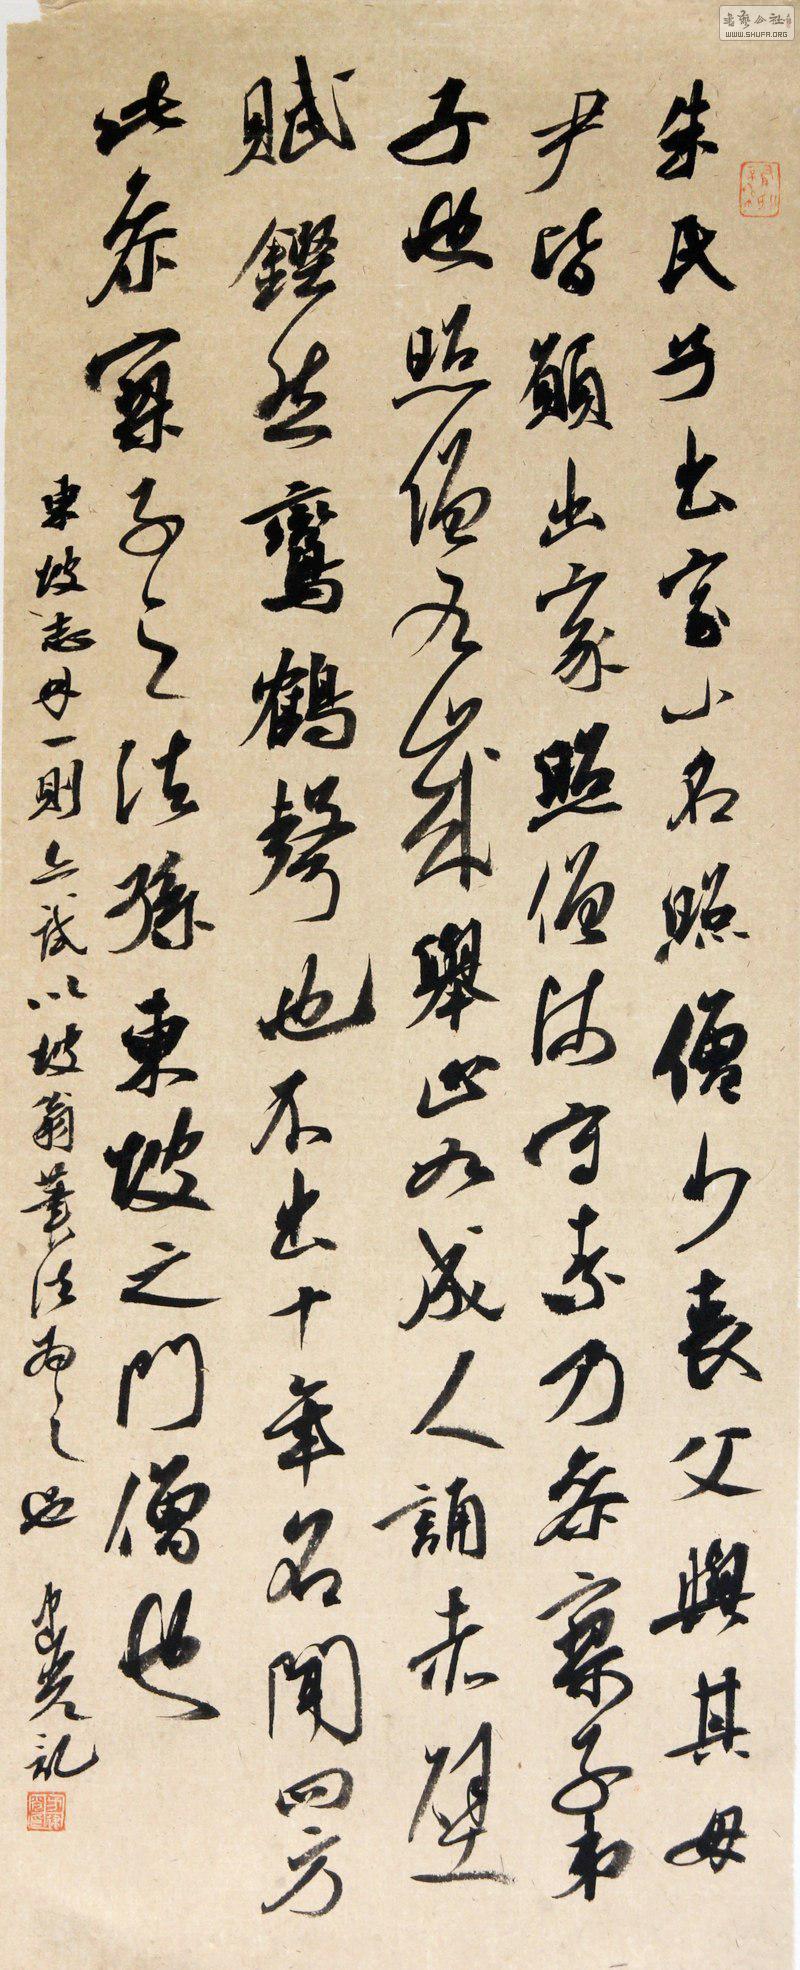 朱氏子出家小名照僧少喪父與其母
尹皆願出家照僧師守素乃參寥子弟
子也照僧九歲舉止如成人誦赤壁
賦鏗然鸞鶴聲也不出十年名聞四方
此參寥子之法孫東坡之門僧也
東坡志林一則六試以坡翁筆法為之也
記
書藝公社
WWW.SHUFA.ORG